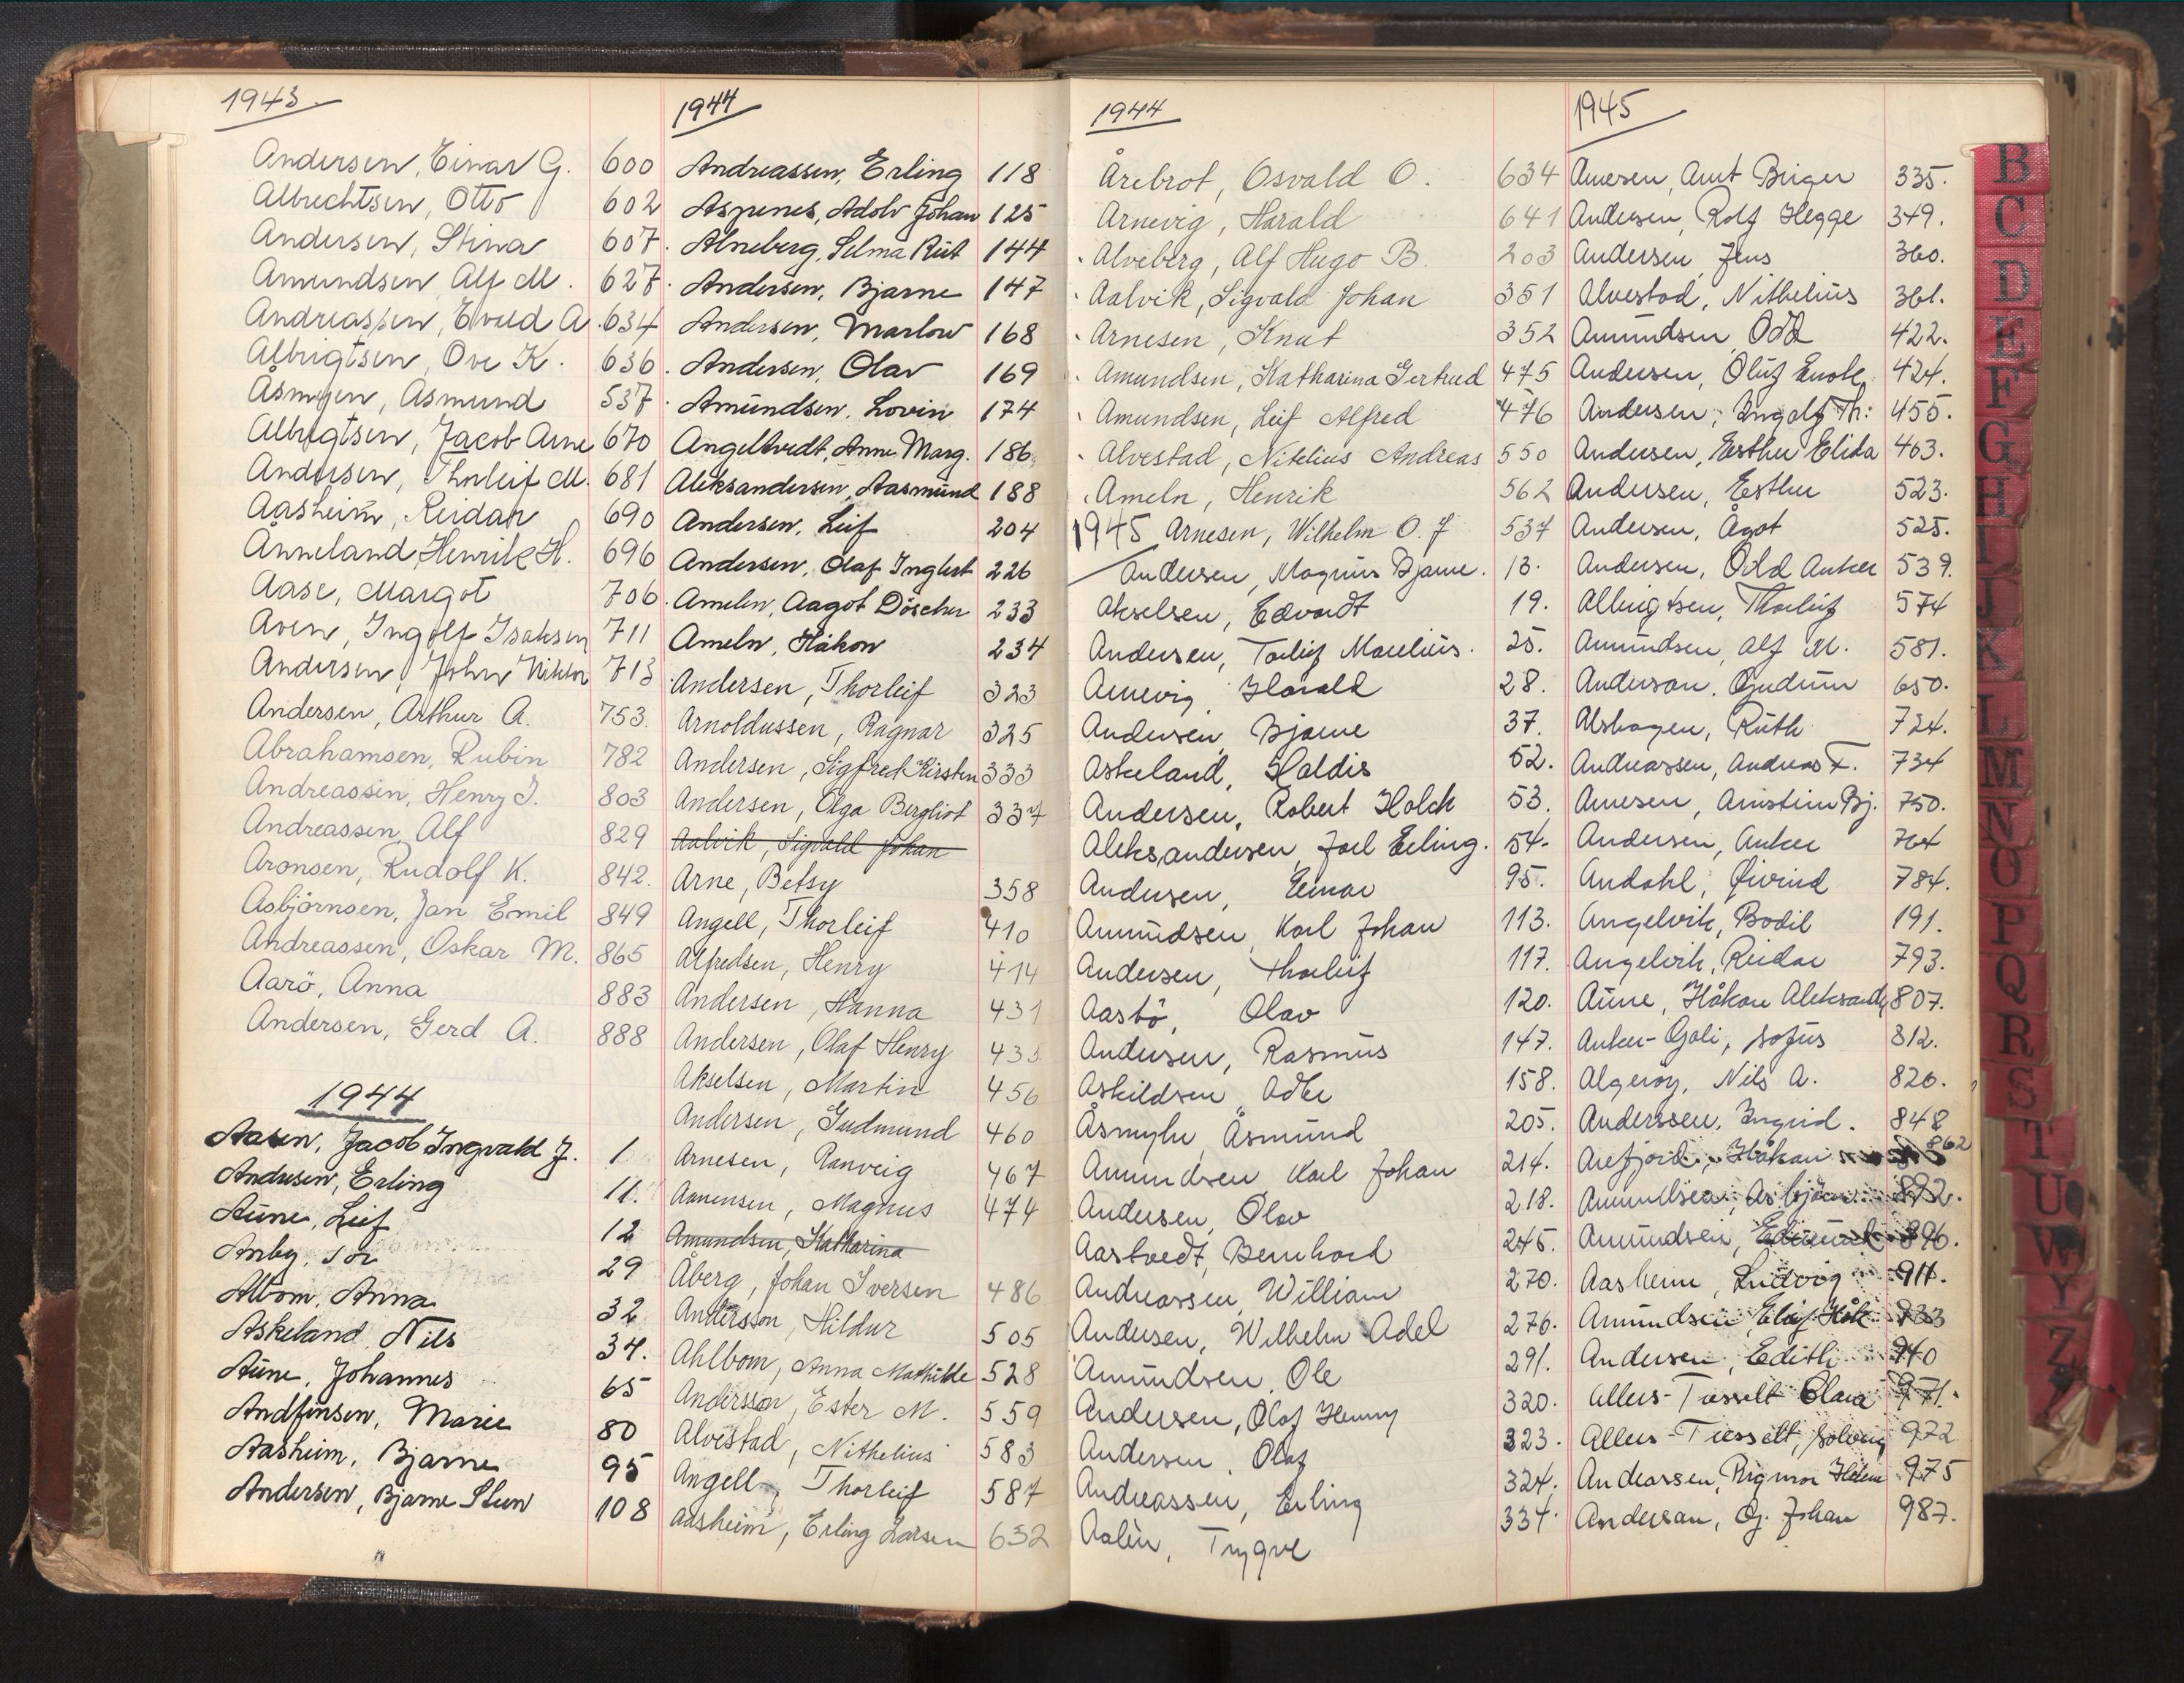 1943
Andersen, Einar G. 600
Albrechtsen, Otto 602
Andersen, Stina 607
Amundsen, Alf M. 627
Andreassen, Evald A. 634
Albrigtsen, Ove K. 636
Åsmyren, Åsmund 537
Albrigtsen, Jacob Arne 670
Andersen, Thorleif M. 681
Aasheim, Reidar 690
Ånneland, Henrik H. 696
Aase, Margot 706
Aven, Ingolf Isaksen 711
Andersen, John Viktor 713
Andersen, Arthur A. 753
Abrahamsen, Rubin 782
Andreassen, Henry J. 803
Andreassen, Alf 829
Aronsen, Rudolf K. 842
Asbjörnsen, Jan Emil 849
Andreassen, Oskar M. 865
Aarö, Anna 883
Andersen, Gerd A. 888
1944
Aasen, Jacob Ingvald J. 1
Andersen, Erling 11.
Aune, Leif 12
Anby, Tor 29
Albom, Anna 32
Askeland, Nils 34.
Aune, Johannes 65
Andfinsen, Marie 80
Aasheim, Bjarne 95
Andersen, Bjarne Steen 108
1944
Andreassen, Erling 118
Aspenes, Adolv Johan 125
Alneberg, Selma Rut 144
Andersen, Bjarne 147
Andersen, Marlow 168
Andersen, Olav 169
Amundsen, Lovin 174
Angeltvedt, Anne Marg. 186
Aleksandersen, Aasmund 188
Andersen, Leif 204
Andersen, Olaf Inglert 226
Ameln, Aagot Döscher 233
Ameln, Håkon 234
Andersen, Thorleif 323
Arnoldussen, Ragnar 325
Andersen, Sigfred Kirsten 333
Andersen, Olga Bergliot 337
Aalvik, Sigvald Johan
Arne, Betsy 358
Angell, Thorleif 410
Alfredsen, Henry 414
Andersen, Hanna 431
Andersen, Olaf Henry 435
Akselsen, Martin 456
Andersen, Gudmund 460
Arnesen, Ranveig 467
Aanensen, Magnus 474
Amundsen, Katharina
Åberg, Johan Iversen 486
Andersson, Hildur 505
Ahlbom, Anna Mathilde 528
Andersson, Ester M. 559
Alvestad, Nithelius 583
Angell, Thorleif 587
Aasheim, Erling Larsen 632
1944
Årebrot, Osvald O. 634
Arnevig, Harald 641
Alveberg, Alf Hugo B. 203
Aalvik, Sigvald Johan 351
Arnesen, Knut 352
Amundsen, Katharina Gertrud 475
Amundsen, Leif Alfred 476
Alvestad, Nitelius Andreas 550
Ameln, Henrik 562
1945 Arnesen, Wilhelm O. J 537
Andersen, Magnus Bjarne. 13.
Akselsen, Edvardt 19.
Andersen, Torleif Marelius. 25.
Arnevig, Harald 28.
Andersen, Bjarne 37.
Askeland, Haldis 52.
Andersen, Robert Holck 53.
Aleksandersen, Joel Erling. 54.
Andersen, Einar 95.
Amundsen, Karl Johan 113.
Andersen, Thorleif 117.
Aasbö, Olav 120.
Andersen, Rasmus 147.
Askildsen, Adle 158.
Åsmyhr, Åsmund 205.
Amundsen Karl Johan 214.
Andersen, Olav 218.
Aastvedt, Bernhard 245.
Andreassen, William 270.
Andersen, Wilhelm Adel 276.
Amundsen, Ole 291.
Andersen, Olaf Henny 320.
Andersen, Olaf 323.
Andreassen, Erling 324.
Aalen, Trygve 334.
1945
Arnesen, Arnt Birger 335.
Andersen, Rolf Hegge 349.
Andersen, Jens 360.
Alvestad, Nithelius 361.
Amundsen, Odd 422.
Andersen, Oluf Enok 424.
Andersen, Ingolf Th: 455.
Andersen, Esther Elida 463.
Andersen, Esther 523.
Andersen, Ågot 525.
Andersen, Odd Anker 539.
Albrigtsen, Thorleif 574
Amundsen, Alf M. 581.
Anderson, Gudrun 650.
Alshagen, Ruth 724.
Andreassen, Andreas F. 734
Arnesen, Arnstein Bj. 750.
Andersen, Anker 764
Andahl, Øivind 784.
Angelvik, Bodil 191.
Angelvik, Reidar 793.
Aune, Håkon Aleksander 807.
Anker-Goli, Sofus 812.
Algeröy, Nils A. 826.
Anderssen, Ingrid. 848
Arefjord, Håkon 862
Amundsen, Asbjörn 892.
Amundsen, Edmund 896.
Aasheim, Ludvig 911.
Amundsen Elaf Håk 933
Andersen, Edith 940
Allers-Tusselt Clara 971.
Allers-Tusselt, Solveig 972
Andreassen, Rigmor Helene 975
Anderson, Oj. Johan 987.
B
C
D
E
F
G
H
I
J
K
L
M
N
O
P
Q
R
S
T
U
W
Y
Z